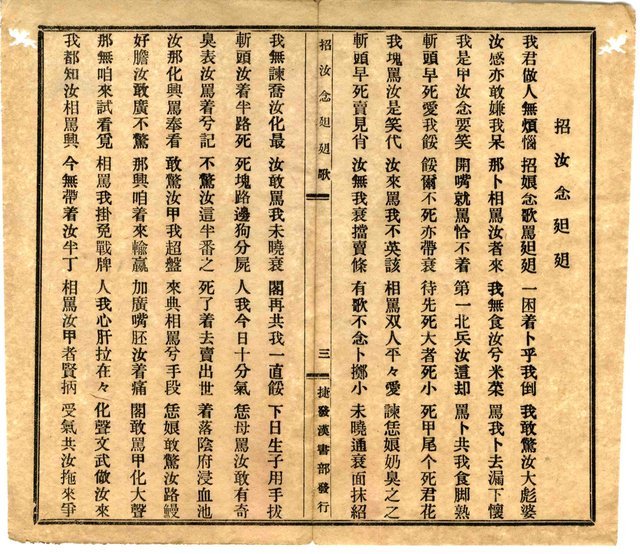 招汝念廻廻
我君做人無煩惱 招娘念歌罵廻廻 一困着卜乎我倒 我敢驚汝大彪婆
汝感亦敢嫌我呆 那卜相罵汝者來 我無食汝兮米菜 罵我卜去漏下懷
我是甲汝念要笑 開嘴就罵恰不着 第一北兵汝這却 罵卜共我食脚熟
斬頭早死愛我餒 餒爾不死亦帶衰 待先死大者死小 死甲尾个死君花
我塊罵汝是笑代 汝來罵我不英該 相罵双人平々愛 諫恁娘奶臭之之
斬頭早死賣見肖 汝無我衰擋賣條 有歌不念卜擲小 未曉通衰面抹紹
招汝念廻廻歌 三 捷發漢書部發行
我無諫喬汝化最 汝敢罵我未曉衰 閣再共我一直餒 下日生子用手拔
斬頭汝着半路死 死塊路邊狗分屍 人我今日十分氣 恁母罵汝敢有奇
臭表汝罵着兮記 不驚汝這半番之 死了着去賣出世 着落陰府浸血池
汝那化興罵奉看 敢驚汝甲我超盤 來典相罵兮手段 恁娘敢驚汝路鰻
好膽汝敢廣不驚 那興咱着來輸嬴 加廣嘴胚汝着痛 閣敢罵甲化大聲
那無咱來試看覓 相罵我掛免戰牌 人我心肝拉在々 化聲文武做汝來
我都知汝相罵興 今無帶着汝半丁 相罵汝甲者賢抦 受氣共汝拖來爭